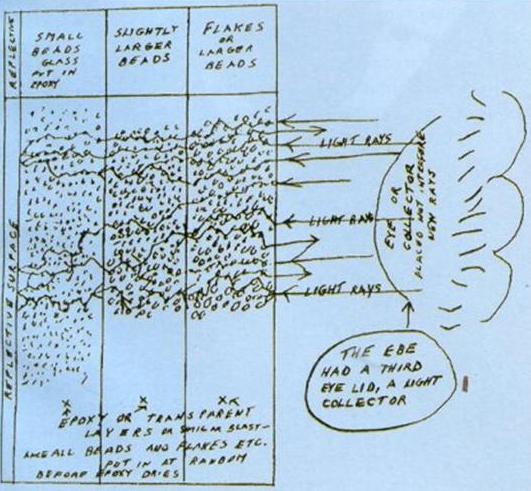 REFLECTIVE
SMALL
BEADS
GLASS
PUT IN
EPOXY
SLIGHTLY
LARGER
BEADS
FLAKES
OR
LARGER
BEADS
REFLECTIVE SURFACE
LIGHT RAYS
LIGHT RAYS
LIGHT RAYS
EYE OR
COLLECTOR
PLACED TO
NEW RAYS
THE EBE
HAD A THIRD
EYE LID, A LIGHT
COLLECTOR
EPOXY OR TRANSPARENT
LAYERS OR SIMILAR BLAST-
ALL BEADS AND FLAKES ETC.
PUT IN AT RANDOM
BEFORE EPOXY DRIES